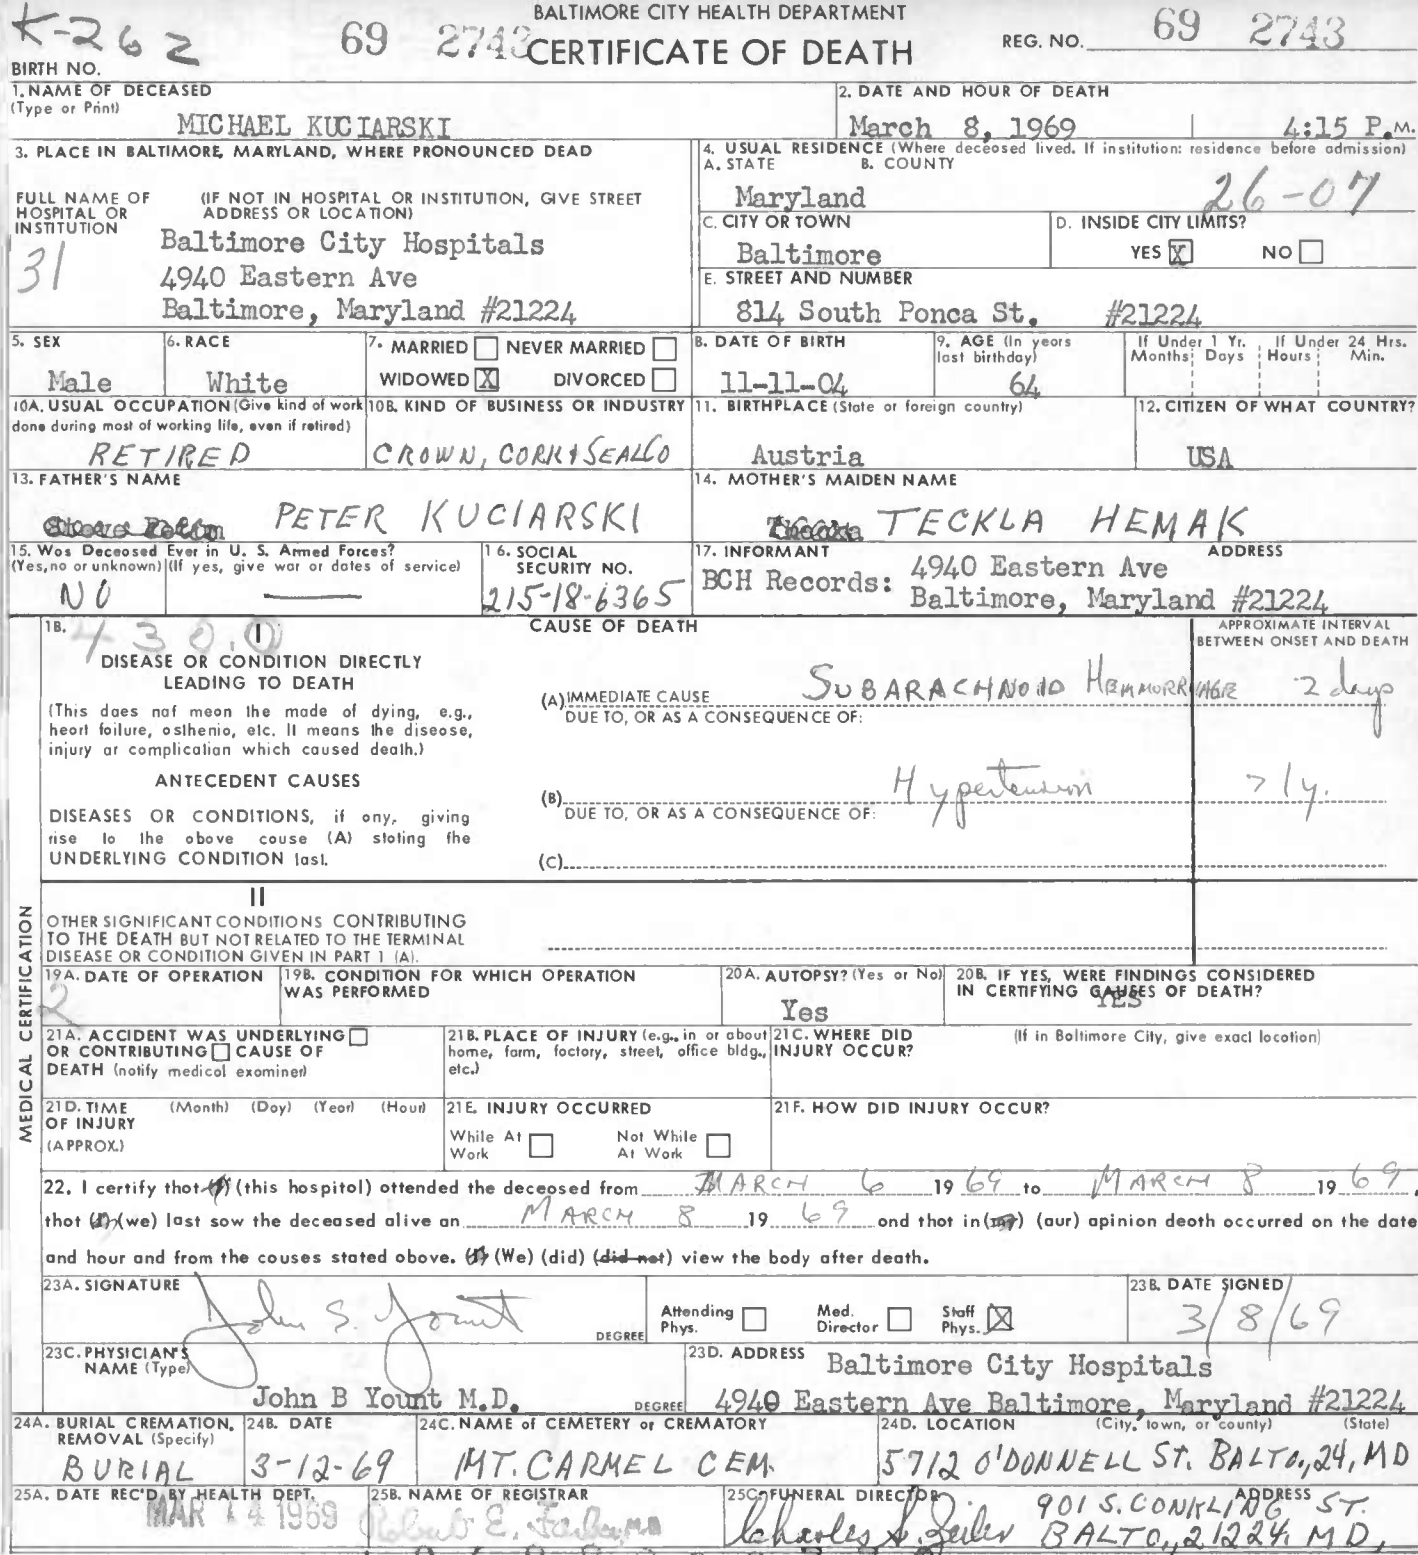 BALTIMORE CITY HEALTH DEPARTMENT
K-262 69 2743 CERTIFICATE OF DEATH REG. NO. 69 2743
BIRTH NO.
1. NAME OF DECEASED
(Type or Print)
MICHAEL KUCIARSKI
2. DATE AND HOUR OF DEATH
March 8, 1969 4:15 P.M.
3. PLACE IN BALTIMORE, MARYLAND, WHERE PRONOUNCED DEAD
FULL NAME OF HOSPITAL OR INSTITUTION
(IF NOT IN HOSPITAL OR INSTITUTION, GIVE STREET ADDRESS OR LOCATION)
31
Baltimore City Hospitals
4940 Eastern Ave
Baltimore, Maryland #21224
4. USUAL RESIDENCE (Where deceased lived. If institution: residence before admission)
A. STATE B. COUNTY
Maryland 26-07
C. CITY OR TOWN
Baltimore
D. INSIDE CITY LIMITS?
YES X NO
E. STREET AND NUMBER
814 South Ponca St. #21224
5. SEX
Male
6. RACE
White
7. MARRIED NEVER MARRIED
WIDOWED X DIVORCED
8. DATE OF BIRTH
11-11-04
9. AGE (In years last birthday)
64
If Under 1 Yr. If Under 24 Hrs.
Months Days Hours Min.
10A. USUAL OCCUPATION (Give kind of work done during most of working life, even if retired)
RETIRED
10B. KIND OF BUSINESS OR INDUSTRY
CROWN, CORK & SEAL CO
11. BIRTHPLACE (State or foreign country)
Austria
12. CITIZEN OF WHAT COUNTRY?
USA
13. FATHER'S NAME
PETER KUCIARSKI
14. MOTHER'S MAIDEN NAME
TECKLA HEMAK
15. Was Deceased Ever in U. S. Armed Forces?
(Yes, no or unknown) (If yes, give war or dates of service)
NO
16. SOCIAL SECURITY NO.
215-18-6365
17. INFORMANT ADDRESS
BCH Records: 4940 Eastern Ave
Baltimore, Maryland #21224
18. 430.0
I
DISEASE OR CONDITION DIRECTLY
LEADING TO DEATH
(This does not mean the mode of dying, e.g.,
heart failure, asthenia, etc. It means the disease,
injury or complication which caused death.)
ANTECEDENT CAUSES
DISEASES OR CONDITIONS, if any, giving
rise to the above cause (A) stating the
UNDERLYING CONDITION last.
CAUSE OF DEATH
APPROXIMATE INTERVAL
BETWEEN ONSET AND DEATH
(A) IMMEDIATE CAUSE SUBARACHNOID HEMMORRHAGE 2 days
DUE TO, OR AS A CONSEQUENCE OF:
(B) Hypertension >1y.
DUE TO, OR AS A CONSEQUENCE OF:
(C)
II
OTHER SIGNIFICANT CONDITIONS CONTRIBUTING
TO THE DEATH BUT NOT RELATED TO THE TERMINAL
DISEASE OR CONDITION GIVEN IN PART 1 (A).
MEDICAL CERTIFICATION
19A. DATE OF OPERATION
2
19B. CONDITION FOR WHICH OPERATION WAS PERFORMED
20A. AUTOPSY? (Yes or No)
Yes
20B. IF YES, WERE FINDINGS CONSIDERED IN CERTIFYING CAUSES OF DEATH?
YES
21A. ACCIDENT WAS UNDERLYING
OR CONTRIBUTING CAUSE OF
DEATH (notify medical examiner)
21B. PLACE OF INJURY (e.g., in or about home, farm, factory, street, office bldg., etc.)
21C. WHERE DID INJURY OCCUR?
(If in Baltimore City, give exact location)
21D. TIME OF INJURY (APPROX.)
(Month) (Day) (Year) (Hour)
21E. INJURY OCCURRED
While At Work Not While At Work
21F. HOW DID INJURY OCCUR?
22. I certify that (I) (this hospital) attended the deceased from MARCH 6 1969 to MARCH 8 1969,
that (I) (we) last saw the deceased alive on MARCH 8 1969 and that in (my) (our) opinion death occurred on the date
and hour and from the causes stated above. (I) (We) (did) (did not) view the body after death.
23A. SIGNATURE
John S. Yount
DEGREE
Attending Phys. Med. Director Staff Phys. X
23B. DATE SIGNED
3/8/69
23C. PHYSICIAN'S NAME (Type)
John B Yount M.D.
DEGREE
23D. ADDRESS
Baltimore City Hospitals
4940 Eastern Ave Baltimore, Maryland #21224
24A. BURIAL CREMATION, REMOVAL (Specify)
BURIAL
24B. DATE
3-12-69
24C. NAME of CEMETERY or CREMATORY
MT. CARMEL CEM.
24D. LOCATION (City, town, or county) (State)
5712 O'DONNELL ST. BALTO., 24, MD
25A. DATE REC'D BY HEALTH DEPT.
MAR 14 1969
25B. NAME OF REGISTRAR
Robert E. Farber, MD
25C. FUNERAL DIRECTOR ADDRESS
Charles S. Zeiler 901 S. CONKLING ST.
BALTO., 21224, MD.